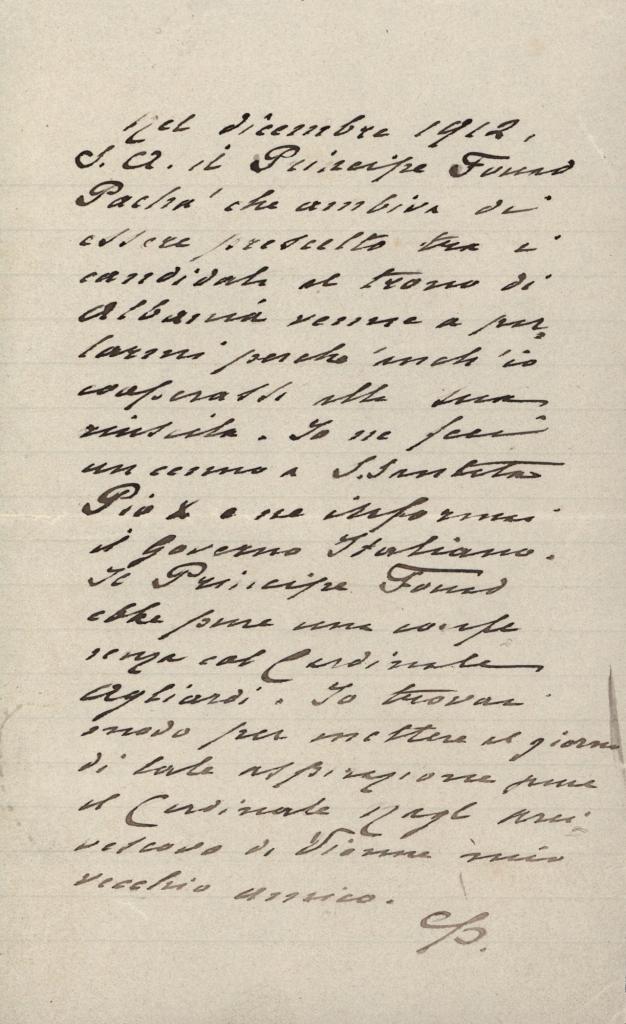 Nel dicembre 1912,
S. A. il Principe Fouad
Pachà che ambiva di
essere prescelto tra i
candidati al trono di
Albania venne a par=
larmi perchè anch'io
cooperassi alla sua
riuscita. Io ne feci
un cenno a S. Santità
Pio X e ne informai
il Governo Italiano.
Il Principe Fouad
ebbe pure una confe
renza col Cardinale
Agliardi. Io trovai
modo per mettere al giorno
di tale aspirazione pure
il Cardinale Nagl Arci=
vescovo di Vienna mio
vecchio amico.